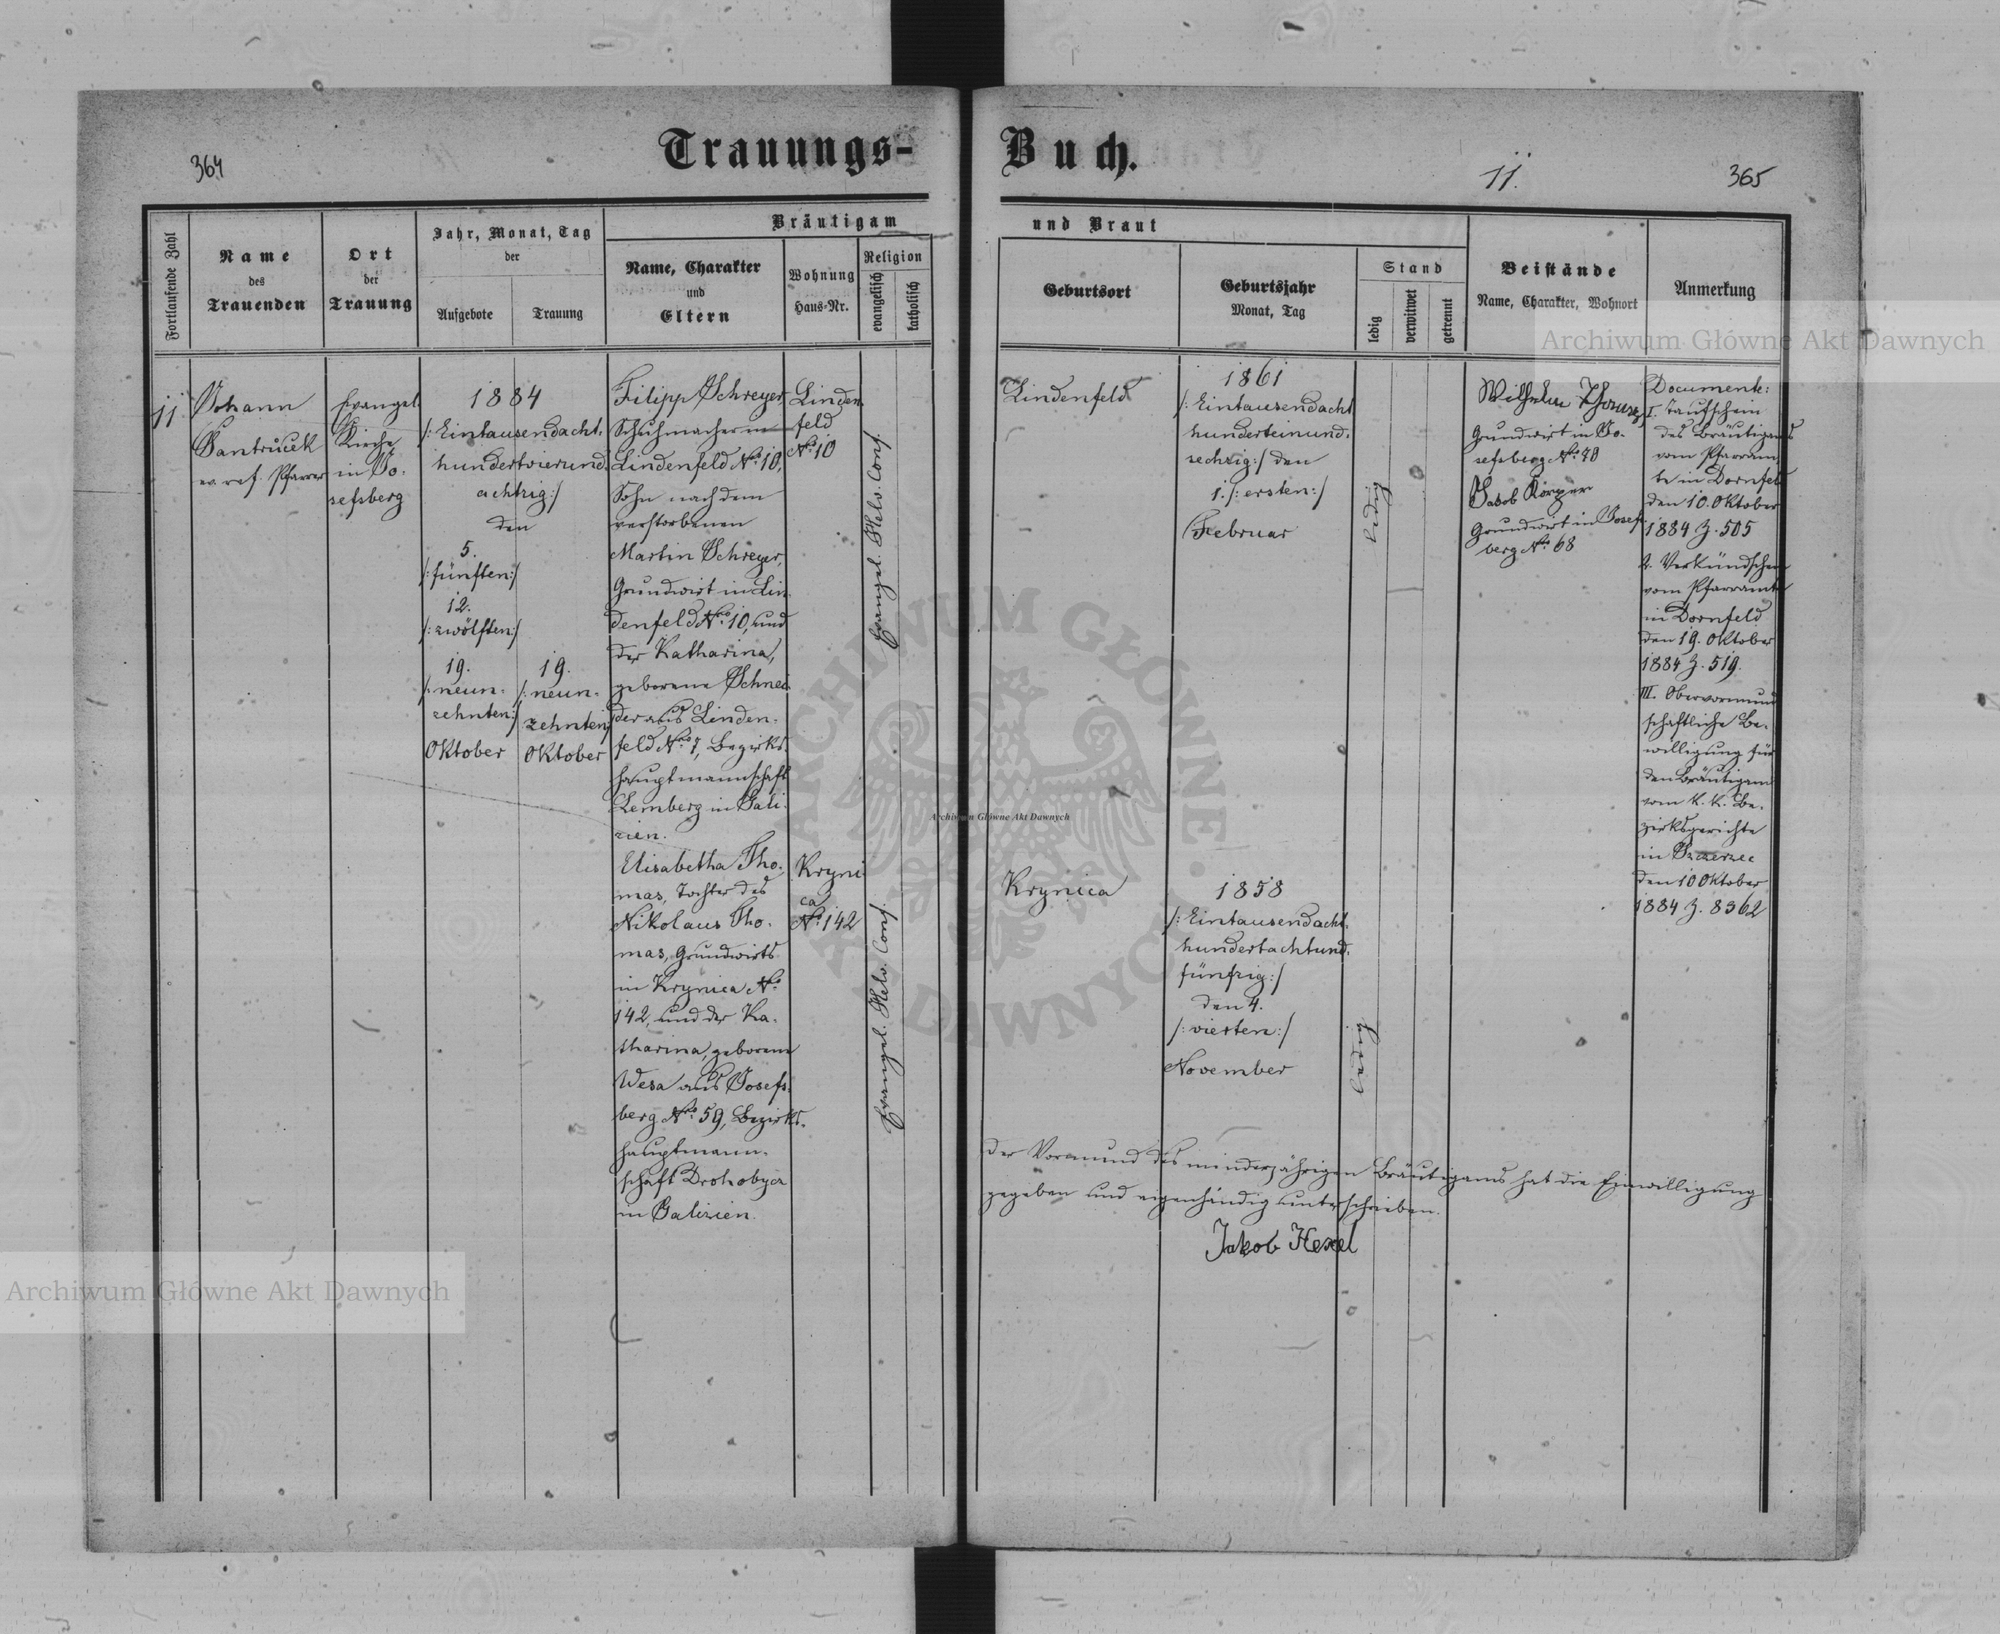 364
Trauungs-
Buch.
11.
365
Fortlaufende Zahl
Name
des
Trauenden
Ort
der
Trauung
Jahr, Monat, Tag
der
Aufgebote
Trauung
Bräutigam
Name, Charakter
und
Eltern
Wohnung
Haus-Nr.
Religion
evangelisch
katholisch
und Braut
Geburtsort
Geburtsjahr
Monat, Tag
Stand
ledig
verwitwet
getrennt
Beistände
Name, Charakter, Wohnort
Anmerkung
11
Johann
Jantrucek
ev. ref. Pfarrer
Evangel.
Kirche
in Jo-
sefsberg
1884
/: Eintausendacht-
hundertvierund-
achtzig :/
den
5.
/: fünften :/
12.
/: zwölften :/
19.
/: neun-
zehnten :/
Oktober
19.
/: neun-
zehnten :/
Oktober
Filipp Schreyer,
Schuhmacher in
Lindenfeld No. 10,
Sohn nach dem
verstorbenen
Martin Schreyer,
Grundwirt in Lin-
denfeld No. 10, und
der Katharina,
geborene Schnei-
der aus Linden-
feld No. 7, Bezirks-
hauptmannschaft
Lemberg in Gali-
zien.
Linden-
feld
No. 10
Evangel. Helv. Conf.
Elisabetha Tho-
mas, Tochter des
Nikolaus Tho-
mas, Grundwirts
in Krynica No.
142, und der Ka-
tharina, geborene
Wesa aus Josefs-
berg No. 59, Bezirks-
hauptmann-
schaft Drohobycz
in Galizien.
Kryni-
ca
No. 142
Evangel. Helv. Conf.
Lindenfeld
1861
/: Eintausendacht
hunderteinund-
sechzig :/ den
1. /: ersten :/
Februar
ledig
Krynica
1858
/: Eintausendacht-
hundertachtund-
fünfzig :/
den 4.
/: vierten :/
November
ledig
Wilhelm Thomas
Grundwirt in Jo-
sefsberg No. 70
Jakob Körper
Grundwirt in Josefs-
berg No. 68
Documente:
I. Taufschein
des Bräutigams
vom Pfarram-
te in Dornfeld
den 10. Oktober
1884 Z. 505
2. Verkündschein
vom Pfarramte
in Dornfeld
den 19. Oktober
1884 Z. 519.
III. Obervormund
schaftliche Be-
willigung für
den Bräutigam
vom k. k. Be-
zirksgerichte
in Szczerzec
den 10 Oktober
1884 Z. 8362
Der Vormund des minderjährigen Bräutigams hat die Einwilligung
gegeben und eigenhändig unterschrieben.
Jakob Hexel
Archiwum Główne Akt Dawnych
Archiwum Główne Akt Dawnych
Archiwum Główne Akt Dawnych
ARCHIWUM GŁÓWNE AKT DAWNYCH